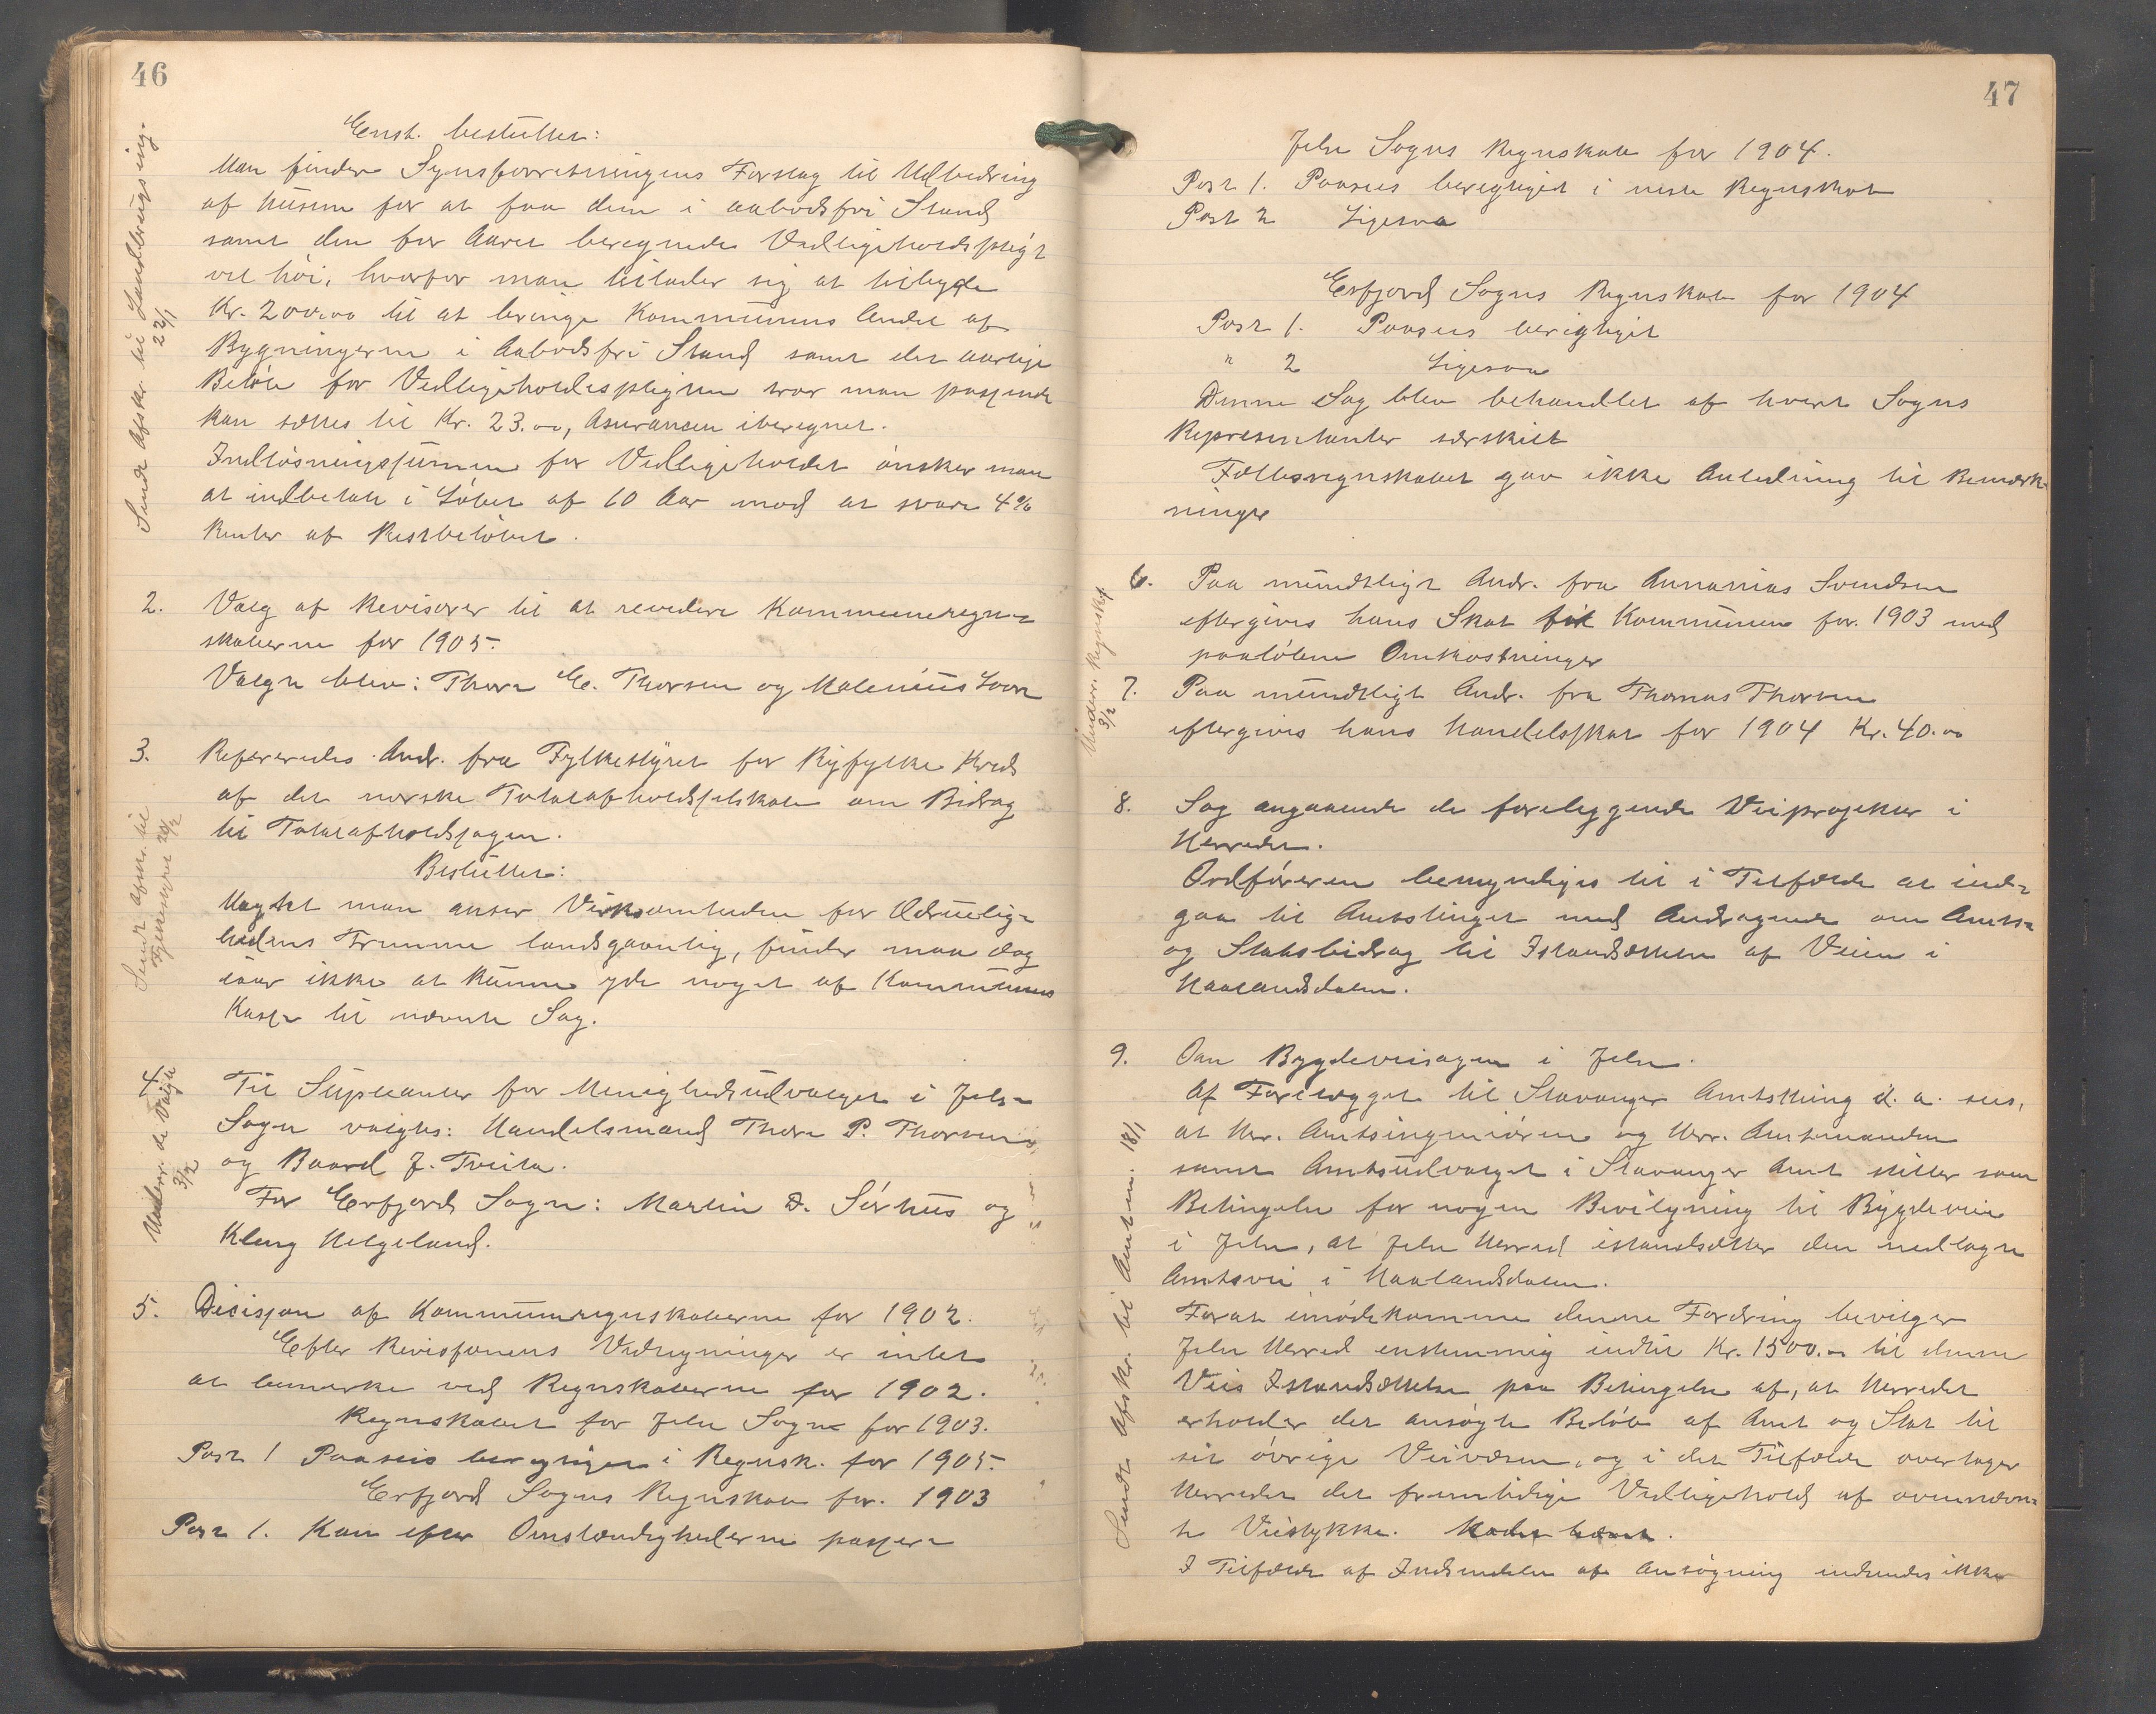 46
Enst. beslutter:
Man finder Synsforretningens Forslag til Udbedring
af Husene for at faa dem i aabodsfri Stand
samt den for Aaret beregnede Vedligeholdspligt
vel høi, hvorfor man tillader sig at tilbyde
Kr. 200.00 til at bringe Kommunens Andel af
Bygningerne i Aabodsfri Stand samt det aarlige
Beløb for Vedligeholdespligten tror man passende
kan sættes til Kr. 23.00, Assurancen iberegnet.
Indløsningssummen for Vedligeholdet ønsker man
at indbetale i Løbet af 10 Aar mod at svare 4%
Renter af Restbeløbet.
Sendt Afskr. til Landbrugsing.
22/1
2. Valg af Revisorer til at revidere Kommuneregn-
skaberne for 1905.
Valgte blev: Thore E. Thorsen og Malenius
3. Refereredes Andr. fra Fylkestyret for Ryfylke Kreds
af det norske Totalafholdsselskab om Bidrag
til Totalafholdssagen.
Beslutter:
Uagtet man anser Virksomheden for Ædruelig-
hedens Fremme landsgavnlig, finder man dog
iaar ikke at kunne yde noget af Kommunens
Kasse til nævnte Sag.
Sendt afskr. til
Fylkesstyret 20/2
4. Til Supleanter for Menighedsudvalget i Jelse
Sogn valgtes: Handelsmand Thore P. Thorsen
og Baard J. Tveita.
For Erfjord Sogn: Martin D. Sørhus og
Kleng Helgeland.
Underr. de Valgte
3/2
5. Decisjon af Kommuneregnskaberne for 1902.
Efter Revisjonens Vedtegninger er intet
at bemerke ved Regnskaberne for 1902.
Regnskabet for Jelse Sogn for 1903.
Post 1 Paasees berigtiget i Regnsk. for 1905.
Erfjord Sogns Regnskab for 1903
Post 1. Kan efter Omstændighederne passere
47
Jelse Sogns Regnskab for 1904.
Post 1. Paasees berigtiget i neste Regnskab
Post 2 Ligesaa
Erfjord Sogns Regnskab for 1904
Post 1. Paasees berigtiget
" 2 Ligesaa
Denne Sag blev behandlet af hvert Sogns
Representanter særskilt
Fællesregnskabet gav ikke Anledning til Bemærk-
ninger
6. Paa mundtligt Andr. fra Annanias Svendsen
eftergives hans Skat til Kommunen for 1903 med
paaløbne Omkostninger
7. Paa mundtligt Andr. fra Thomas Thorsen
eftergives hans Handelsskat for 1904 Kr. 40.00
Underr. Regnskf
3/2
8. Sag angaaende de foreliggende Veiprojekter i
Herredet.
Ordføreren bemyndiges til i Tilfælde at ind-
gaa til Amtstinget med Andragende om Amts-
og Statsbidrag til Istandsættelse af Veien i
Haalandsdalen.
9. Om Bygdeveisagen i Jelse.
Af Forelægget til Stavanger Amtsthing d. a. sees,
at Hr. Amtsingeniøren og Hr. Amtmanden
samt Amtsudvalget i Stavanger Amt stiller som
Betingelse for nogen Bevilgning til Bygdeveie
i Jelse, at Jelse Herred istandsætter den nedlagte
Amtsvei i Haalandsdalen.
Forat imødekomme denne Fordring bevilger
Jelse Herred enstemmig indtil Kr. 1500.00 til denne
Veis Istandsættelse paa Betingelse af, at Herredet
erholder det ansøgte Beløb af Amt og Stat til
sit øvrige Veivæsen, og i det Tilfælde overtager
Herredet det fremtidige Vedligehold af ovennævn-
te Veistykke.
I Tilfælde af Indsendelse af Ansøgning indsendes ikke
Sendt Afskr. til Amtm. 18/1